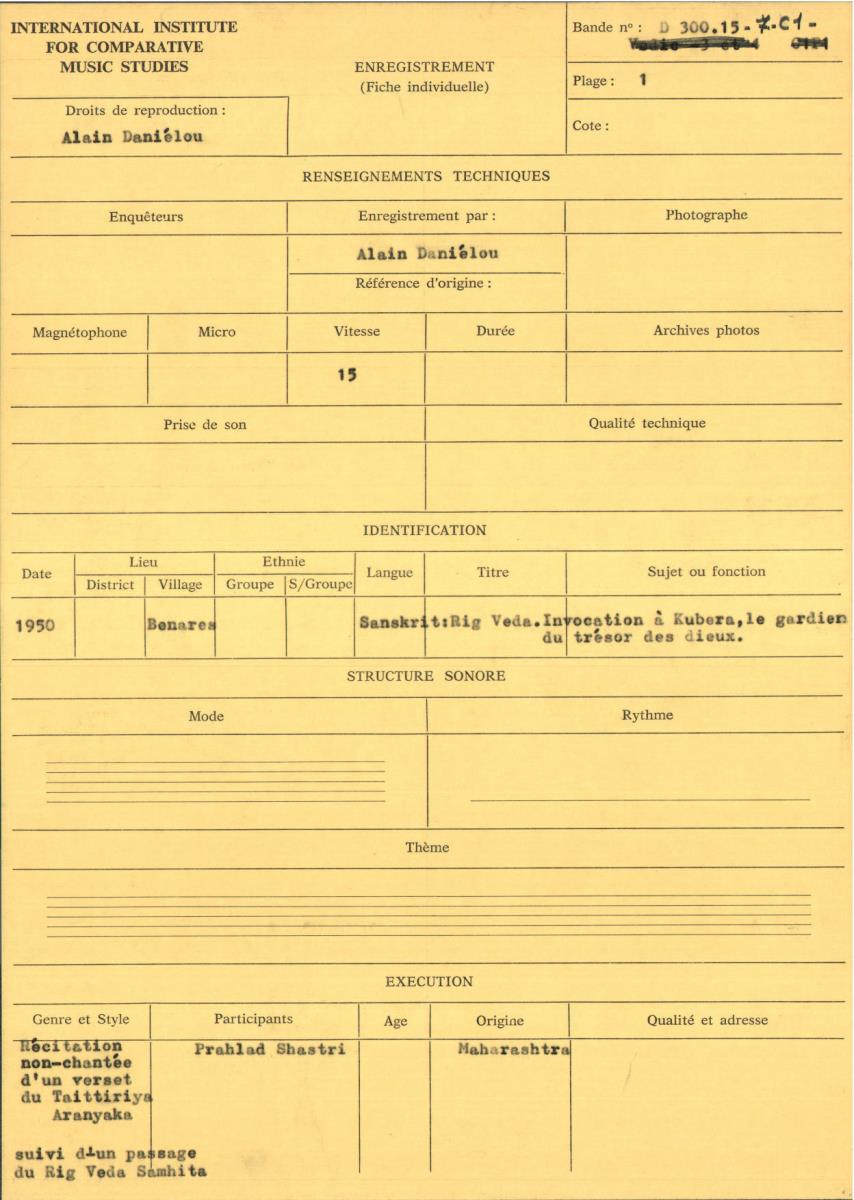 INTERNATIONAL INSTITUTE
FOR COMPARATIVE
MUSIC STUDIES
Droits de reproduction :
Alain Daniélou
ENREGISTREMENT
(Fiche individuelle)
Bande nº : D 300.15-7-C1-
Vedic 3 et 4
Plage : 1
Cote :
RENSEIGNEMENTS TECHNIQUES
Enquêteurs
Enregistrement par :
Photographe
Alain Daniélou
Référence d'origine :
Magnétophone
Micro
Vitesse
Durée
Archives photos
15
Prise de son
Qualité technique
IDENTIFICATION
Date
Lieu
District
Village
Ethnie
Groupe
S/Groupe
Langue
Titre
Sujet ou fonction
1950
Benares
Sanskrit:Rig Veda.Invocation à Kubera,le gardien
du trésor des dieux.
STRUCTURE SONORE
Mode
Rythme
Thème
EXECUTION
Genre et Style
Participants
Age
Origine
Qualité et adresse
Récitation
non-chantée
d'un verset
du Taittiriya
Aranyaka
suivi d'un passage
du Rig Veda Samhita
Prahlad Shastri
Maharashtra